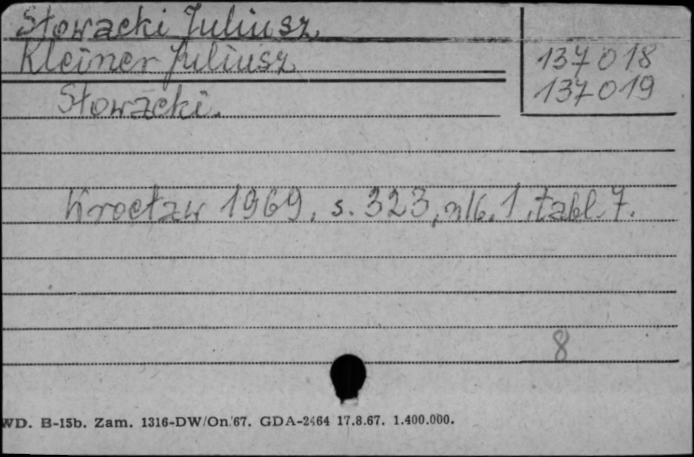 Słowacki Juliusz
Kleiner Juliusz
137018
137019
Słowacki.
Wrocław 1969, s. 323, nlb. 1, tabl. 7.
8
WD. B-15b. Zam. 1316-DW/On/67. GDA-2464 17.8.67. 1.400.000.